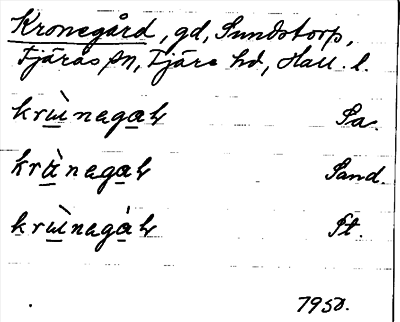 Kronegård, gd, Sundstorp,
Fjärås sn, Fjäre hd, Hall. l.
krɯ̀negaɬ Sa.
krànegaɬ Sand.
krɯ̀negáɬ St.
1950.